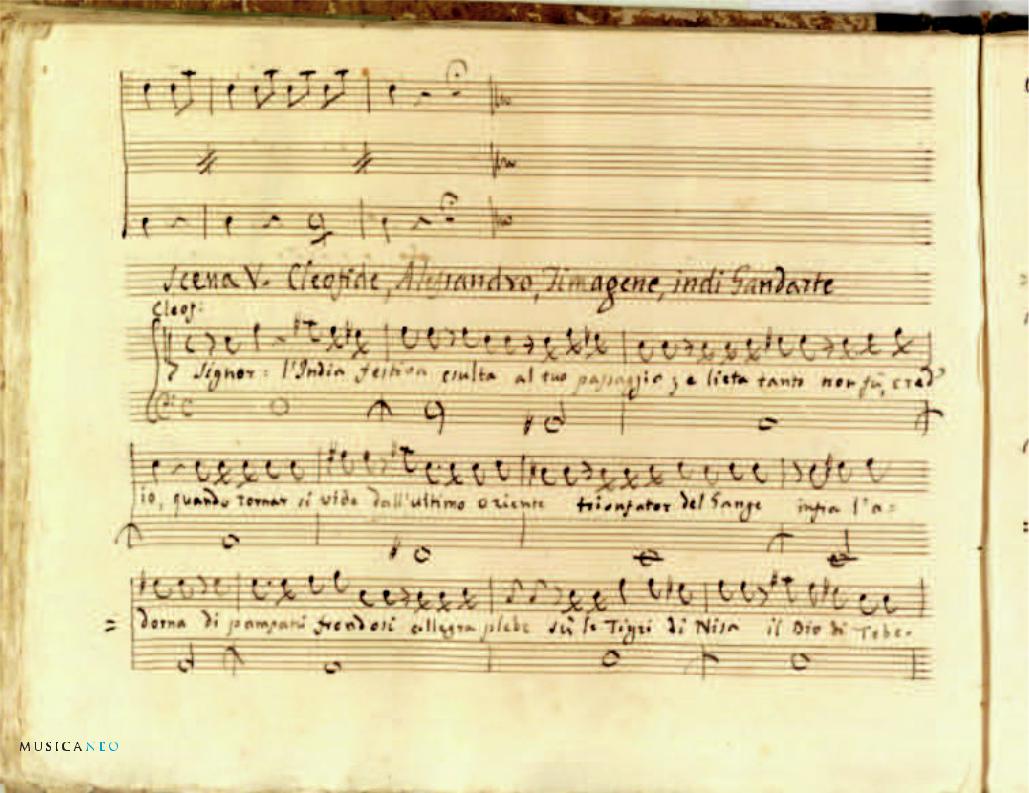 Scena V. Cleofide, Alessandro, Timagene, indi Gandarte
Cleof:
Signor: l'India festiva esulta al tuo passaggio; e lieta tanto non fù, cred'
io, quando tornar si vide dall'ultimo oriente trionfator del Gange infra l'a=
=dorna di pampani frondosi allegra plebe sù le Tigri di Nisa il Dio di Tebe.
MUSICANEO